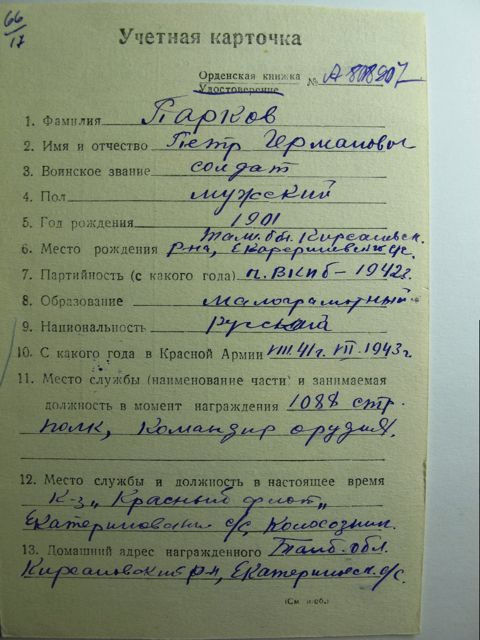 66/17
Учетная карточка
Орденская книжка
Удостоверение № А 808907
1. Фамилия Парков
2. Имя и отчество Петр Германович
3. Воинское звание солдат
4. Пол мужский
5. Год рождения 1901
Там. обл. Кирсановск.
6. Место рождения р-на, с/с.
7. Партийность (с какого года) п. ВКПб – 1942г.
8. Образование малограмотный
9. Национальность русский
10. С какого года в Красной Армии VIII.41г. VII.1943г
11. Место службы (наименование части) и занимаемая
должность в момент награждения 1088 стр.
полк, Командир орудия.
12. Место службы и должность в настоящее время
К-з „Красный флот„
с/с, Колхозник.
13. Домашний адрес награжденного Тамб. обл.
Кирсановский р-н, с/с.
(См. н об.)